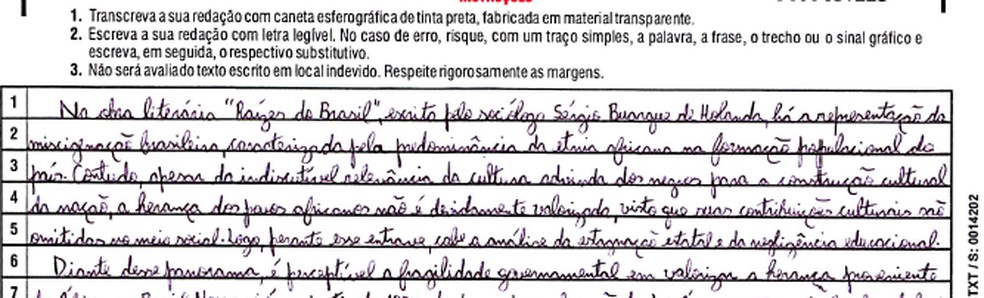 1. Transcreva a sua redação com caneta esferográfica de tinta preta, fabricada em material transparente.
2. Escreva a sua redação com letra legível. No caso de erro, risque, com um traço simples, a palavra, a frase, o trecho ou o sinal gráfico e
escreva, em seguida, o respectivo substitutivo.
3. Não será avaliado texto escrito em local indevido. Respeite rigorosamente as margens.
1 Na obra literária "Raízes do Brasil", escrito pelo sociólogo Sérgio Buarque de Holanda, há a representação da
2 miscigenação brasileira, caracterizada pela predominância da etnia africana na formação populacional do
3 país. Contudo, apesar da indiscutível relevância da cultura advinda dos negros para a construção cultural
4 da nação, a herança dos povos africanos não é devidamente valorizada, visto que suas contribuições culturais são
5 omitidas no meio social. Logo, perante esse entrave, cabe a análise da estagnação estatal e da negligência educacional.
6 Diante desse panorama, é perceptível a fragilidade governamental em valorizar a herança proveniente
7
TXT / S: 0014202